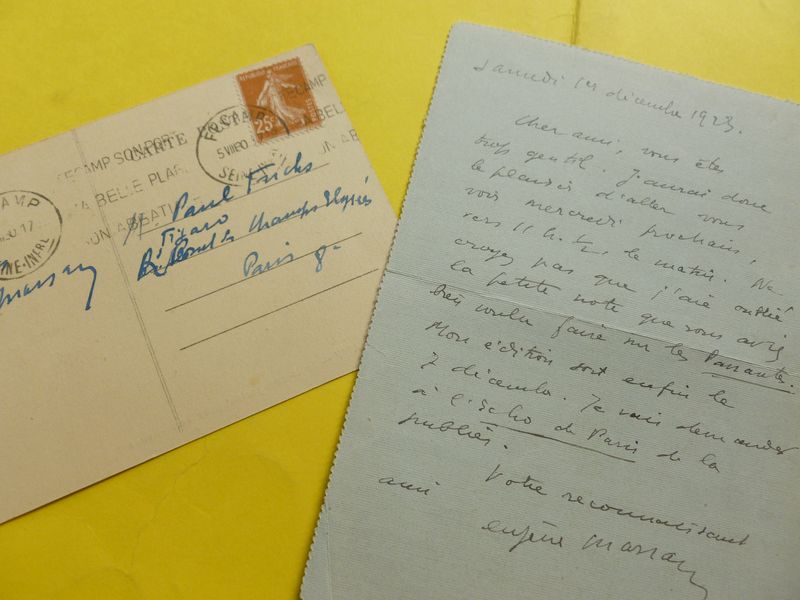 CARTE POSTALE
REPUBLIQUE FRANÇAISE
25c
FECAMP
5 VII 30
SEINE-INFRE
FECAMP SON PORT
SA BELLE PLAGE
SON ABBATIALE
FECAMP
SA BELLE
M. Paul Fuchs
Figaro
Champs Elysées
Paris 8e
Marsan
Samedi 1er décembre 1923.
Cher ami, vous êtes
trop gentil. J'aurai donc
le plaisir d'aller vous
voir mercredi prochain,
vers 11 h. ½ le matin. Ne
croyez pas que j'aie oublié
la petite note que vous avez
bien voulu faire sur les Passantes.
Mon édition sort enfin le
7 décembre. Je vais demander
à l'Echo de Paris de la
publier.
Votre reconnaissant
ami
eugène Marsan